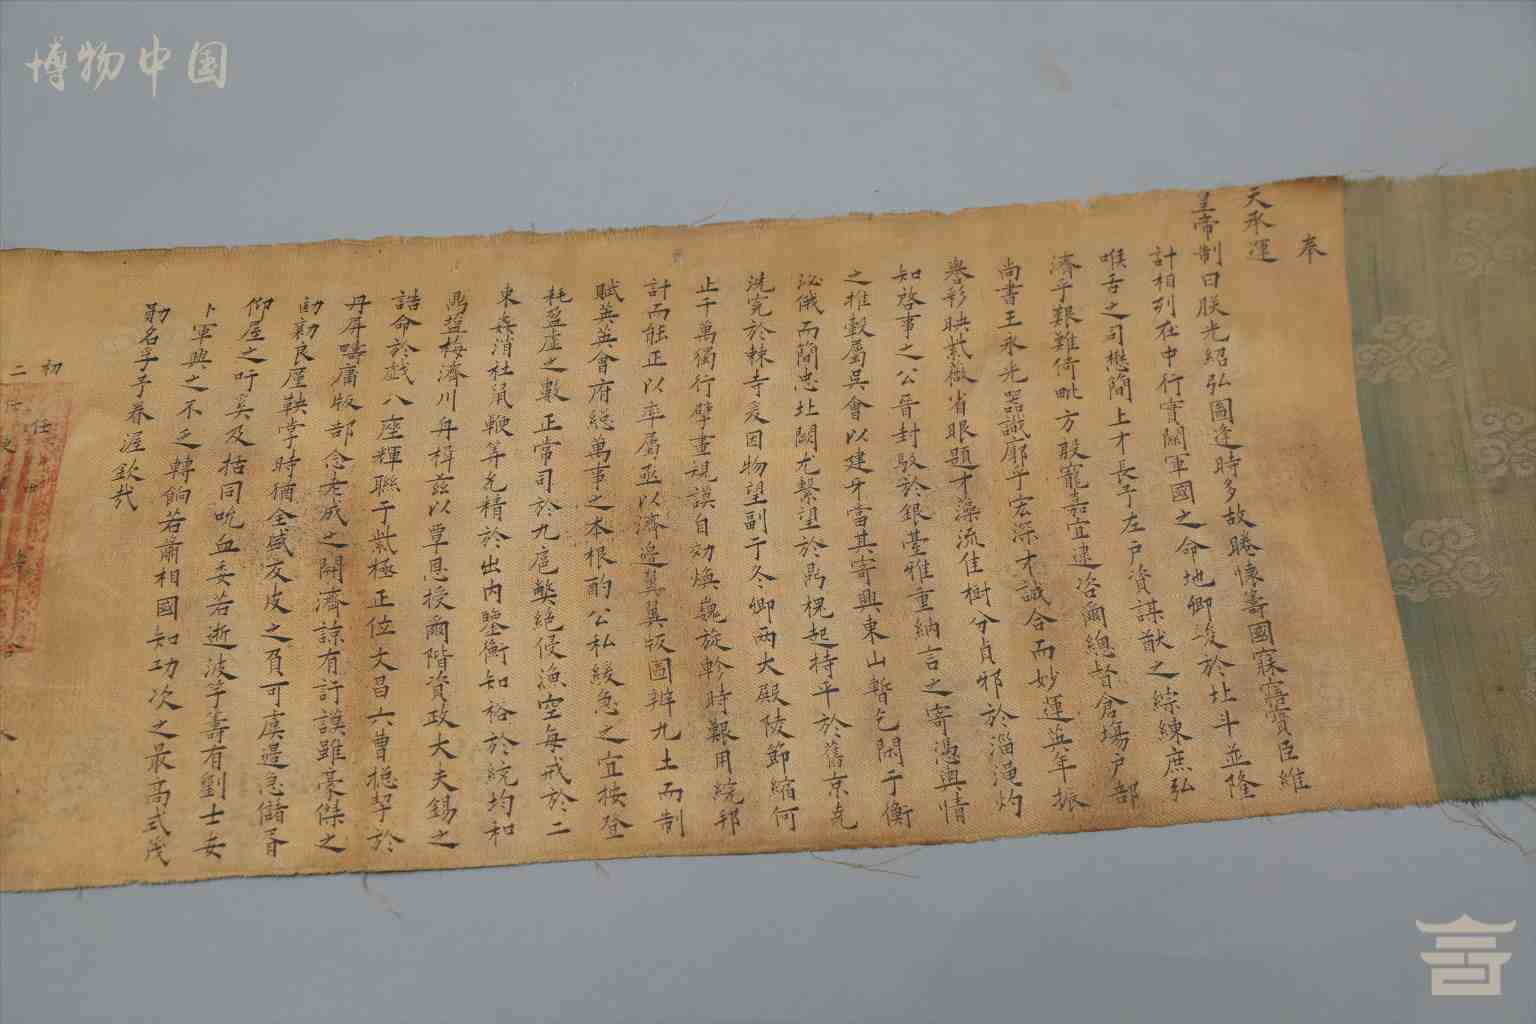 博物中国
奉
天承運
皇帝制曰朕光紹弘圖逢時多故睠懷籌國寐寤實臣維
計相列在中行實關軍國之命地卿峻於北斗並隆
喉舌之司懋簡上才長予左戶資謀猷之綜練庶弘
濟乎艱難倚毗方殷寵嘉宜逮咨爾總督倉場戶部
尚書王永光器識廓乎宏深才誠合而妙運英年振
譽彩映紫薇省眼題才藻流佳樹分貞邪於淄澠灼
知啓事之公晉封駁於銀臺雅重納言之寄憑輿情
之推轂屬吳會以建牙當其寄興東山暫乞閒于衡
泌俄而簡忠北闕尤繫望於鼎槐起持平於舊京克
洗冤於棘寺爰因物望副于冬卿兩大殿陵節縮何
止千萬獨行擘畫規謨自効煥巍旋軫時艱用統邦
計而能正以率屬亟以濟邊翼翼版圖辨九土而制
賦英英會府總萬事之本根酌公私緩急之宜按登
耗盈虛之數正常司於九扈弊絕侵漁空每戒於二
東姦消社鼠鞭算允精於出內鑒衡知裕於統均和
鼎鹽梅濟川舟楫茲以覃恩授爾階資政大夫錫之
誥命於戲八座輝聯于紫極正位文昌六曹穩挈於
丹屏疇庸版部念老成之開濟諒有訏謨雖豪傑之
勛勷良厪鞅掌時猶全盛反皮之負可虞邊急儲胥
仰屋之吁奚及括同吮血委若逝波筭籌有劉士安
卜軍興之不乏轉餉若蕭相國知功次之最高式茂
勛名孚予眷渥欽哉
初任
二任